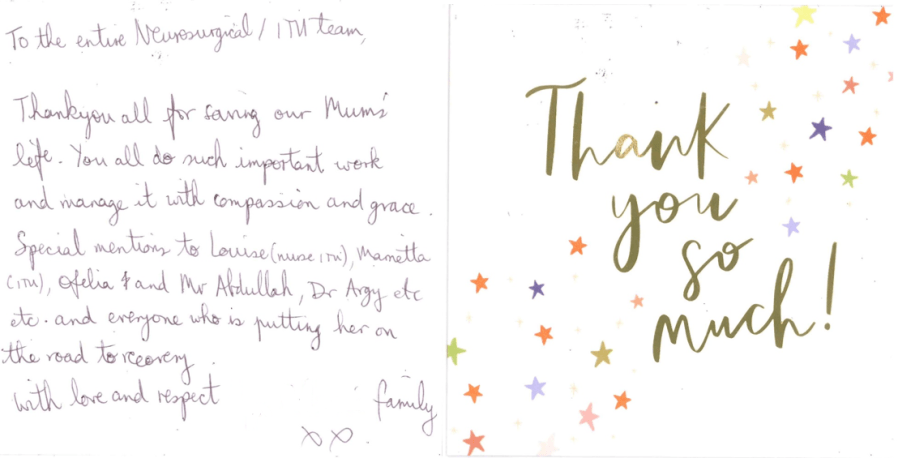 To the entire Neurosurgical / ITU team,
Thankyou all for saving our Mum's
life. You all do such important work
and manage it with compassion and grace.
Special mentions to Louise (nurse ITU), Marietta
(ITU), Ofelia & and Mr Abdullah, Dr Argy etc
etc. and everyone who is putting her on
the road to recovery.
with love and respect
family
xx.
Thank
you
so
much!